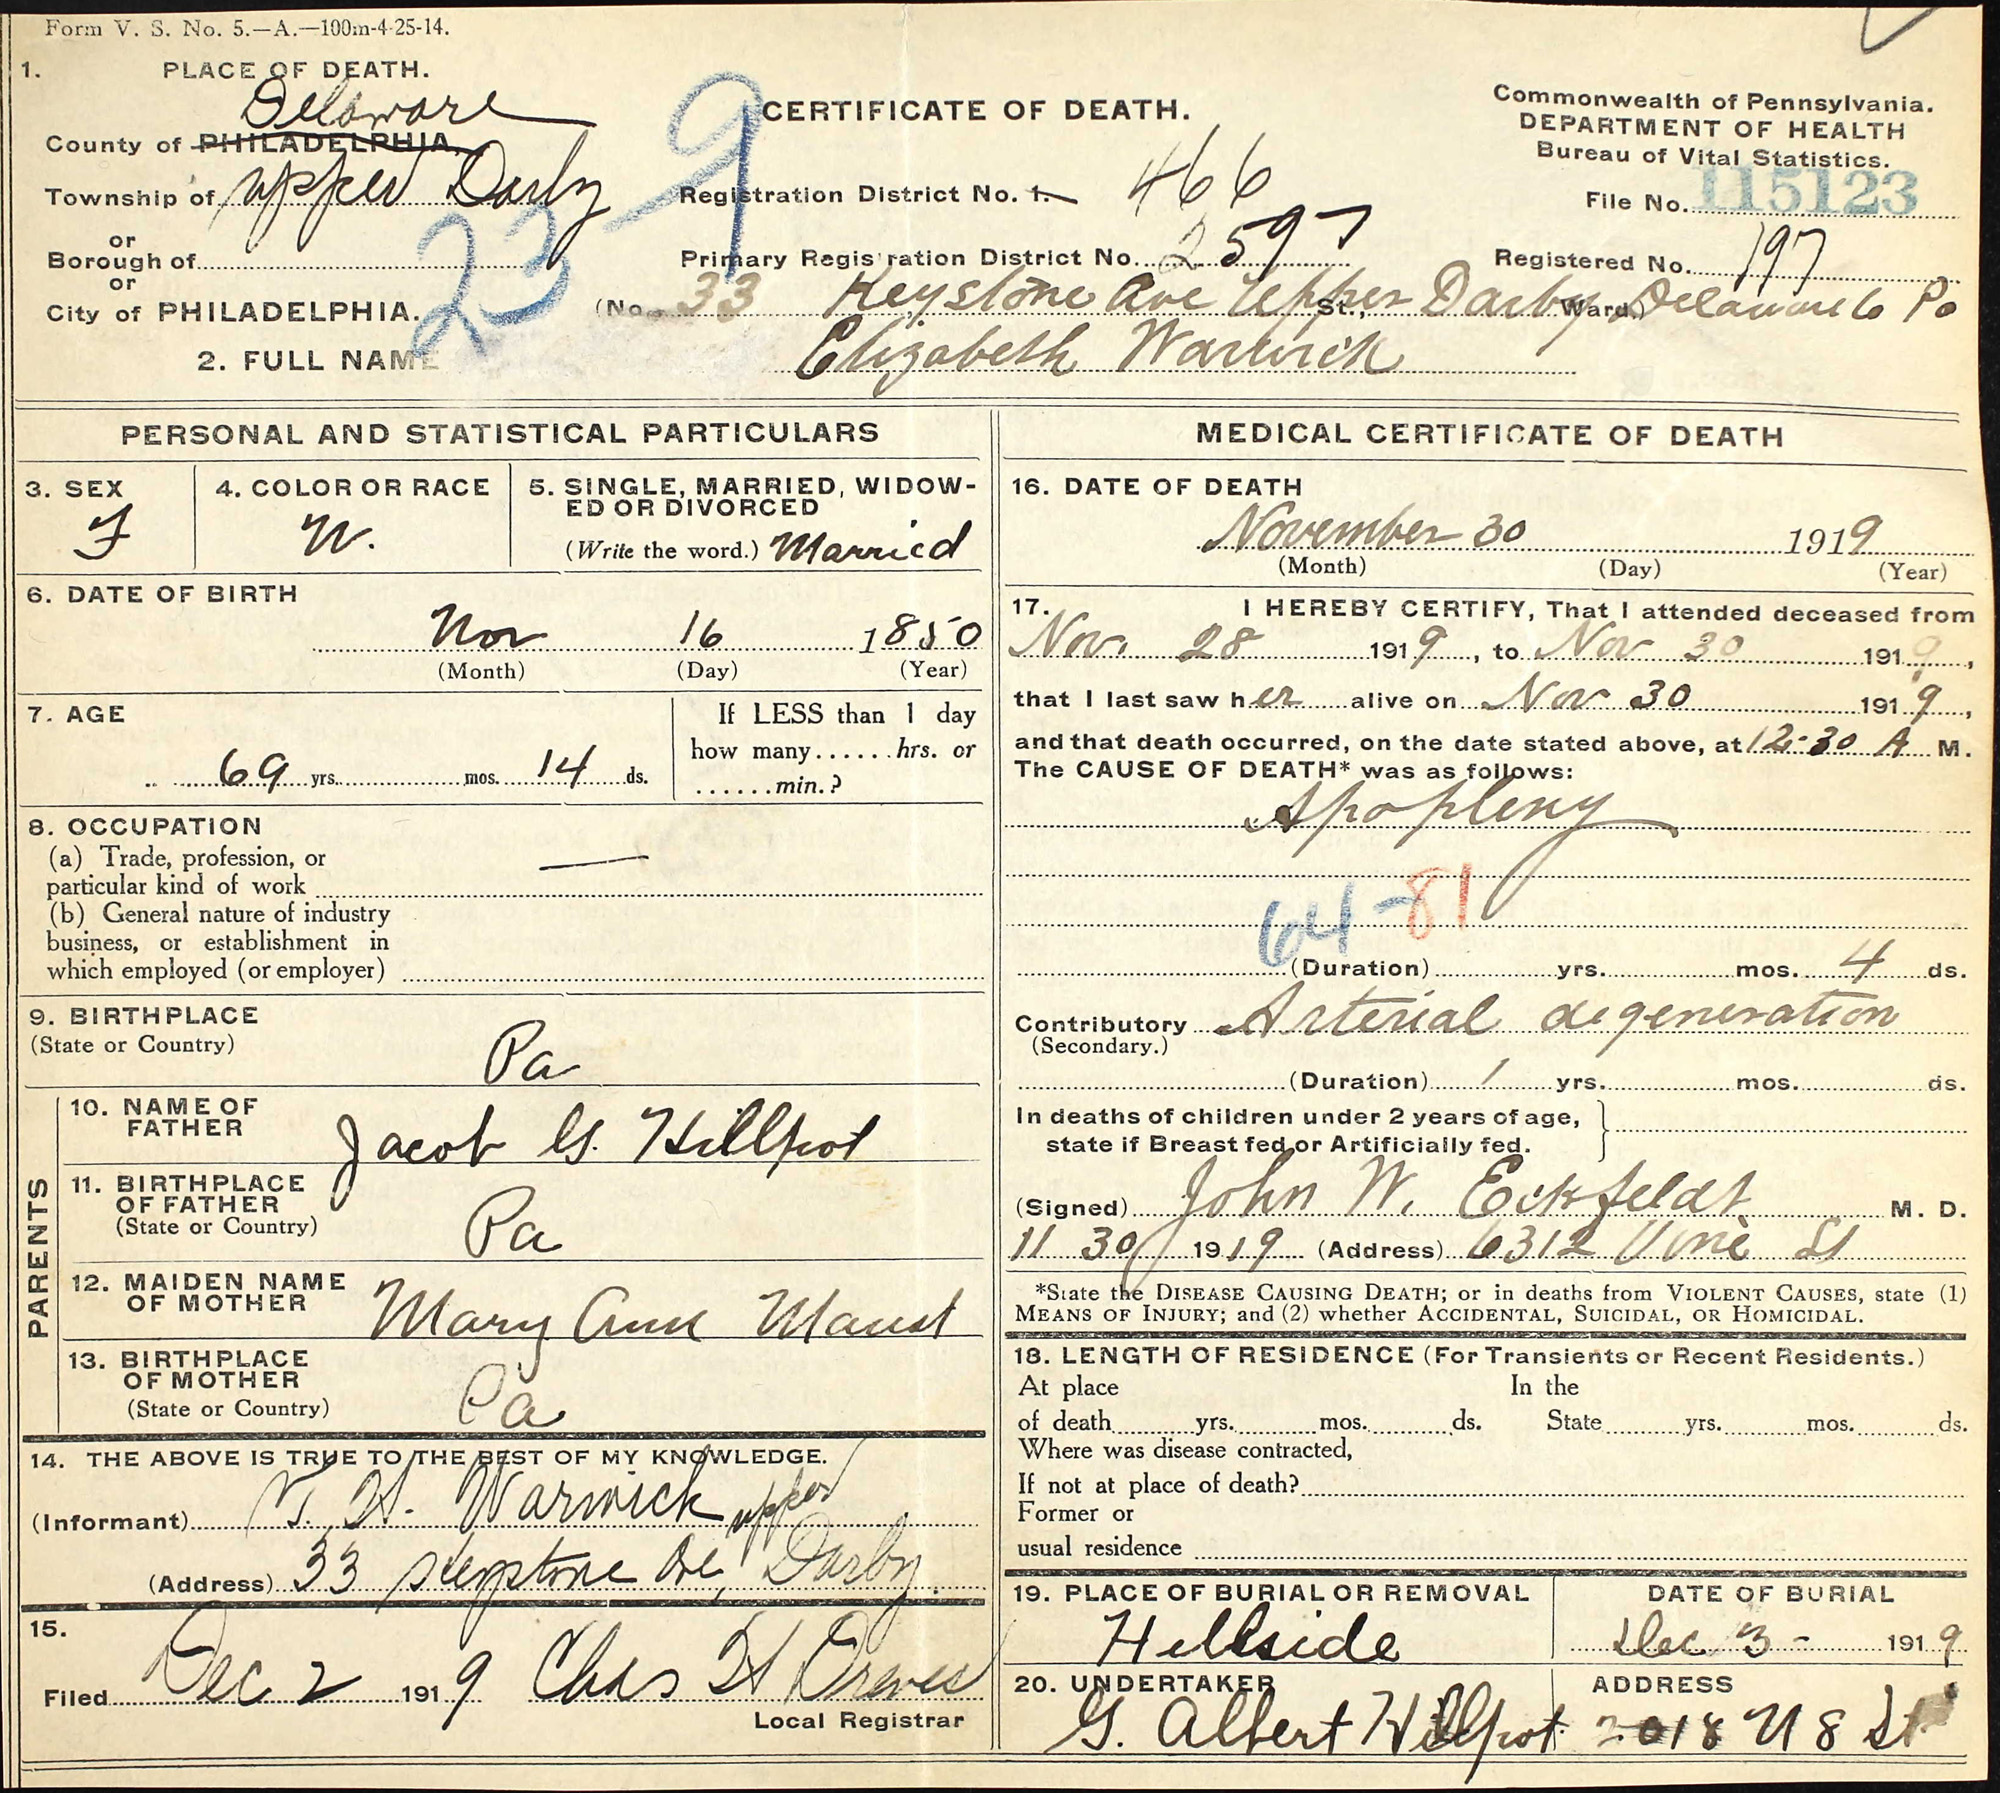 Form V. S. No. 5.—A.—100m-4-25-14.
1. PLACE OF DEATH.
Delaware
County of PHILADELPHIA.
Township of upper Darby
or
Borough of
or
City of PHILADELPHIA.
23-9
CERTIFICATE OF DEATH.
Registration District No. 1. 466
Primary Registration District No. 2597
(No. 33 Keystone Ave Upper Darby Delaware Co Pa St., Ward.)
Commonwealth of Pennsylvania.
DEPARTMENT OF HEALTH
Bureau of Vital Statistics.
File No. 115123
Registered No. 197
2. FULL NAME Elizabeth Warwick
PERSONAL AND STATISTICAL PARTICULARS
3. SEX
F
4. COLOR OR RACE
W.
5. SINGLE, MARRIED, WIDOW-
ED OR DIVORCED
(Write the word.) Married
6. DATE OF BIRTH
Nov 16 1850
(Month) (Day) (Year)
7. AGE
69 yrs. mos. 14 ds.
If LESS than 1 day
how many......hrs. or
......min.?
8. OCCUPATION
(a) Trade, profession, or
particular kind of work —
(b) General nature of industry
business, or establishment in
which employed (or employer)
9. BIRTHPLACE
(State or Country)
Pa
PARENTS
10. NAME OF
FATHER
Jacob G. Hillpot
11. BIRTHPLACE
OF FATHER
(State or Country)
Pa
12. MAIDEN NAME
OF MOTHER
Mary Ann Maust
13. BIRTHPLACE
OF MOTHER
(State or Country)
Pa
14. THE ABOVE IS TRUE TO THE BEST OF MY KNOWLEDGE.
(Informant) T. H. Warwick
(Address) 33 Keystone Ave, upper Darby
15.
Filed Dec 2 1919 Chas H Drewes
Local Registrar
MEDICAL CERTIFICATE OF DEATH
16. DATE OF DEATH
November 30 1919
(Month) (Day) (Year)
17. I HEREBY CERTIFY, That I attended deceased from
Nov. 28 1919, to Nov 30 1919,
that I last saw her alive on Nov 30 1919,
and that death occurred, on the date stated above, at 12-30 A M.
The CAUSE OF DEATH* was as follows:
Apoplexy
64-81
(Duration) yrs. mos. 4 ds.
Contributory Arterial degeneration
(Secondary.)
(Duration) 1 yrs. mos. ds.
In deaths of children under 2 years of age,
state if Breast fed or Artificially fed.
(Signed) John W. Eckfeldt M. D.
11 30 1919 (Address) 6312 Vine St
*State the DISEASE CAUSING DEATH; or in deaths from VIOLENT CAUSES, state (1)
MEANS OF INJURY; and (2) whether ACCIDENTAL, SUICIDAL, OR HOMICIDAL.
18. LENGTH OF RESIDENCE (For Transients or Recent Residents.)
At place In the
of death yrs. mos. ds. State yrs. mos. ds.
Where was disease contracted,
If not at place of death?
Former or
usual residence
19. PLACE OF BURIAL OR REMOVAL
Hillside
DATE OF BURIAL
Dec 3- 1919
20. UNDERTAKER
G. Albert Hillpot
ADDRESS
2018 N 8 St